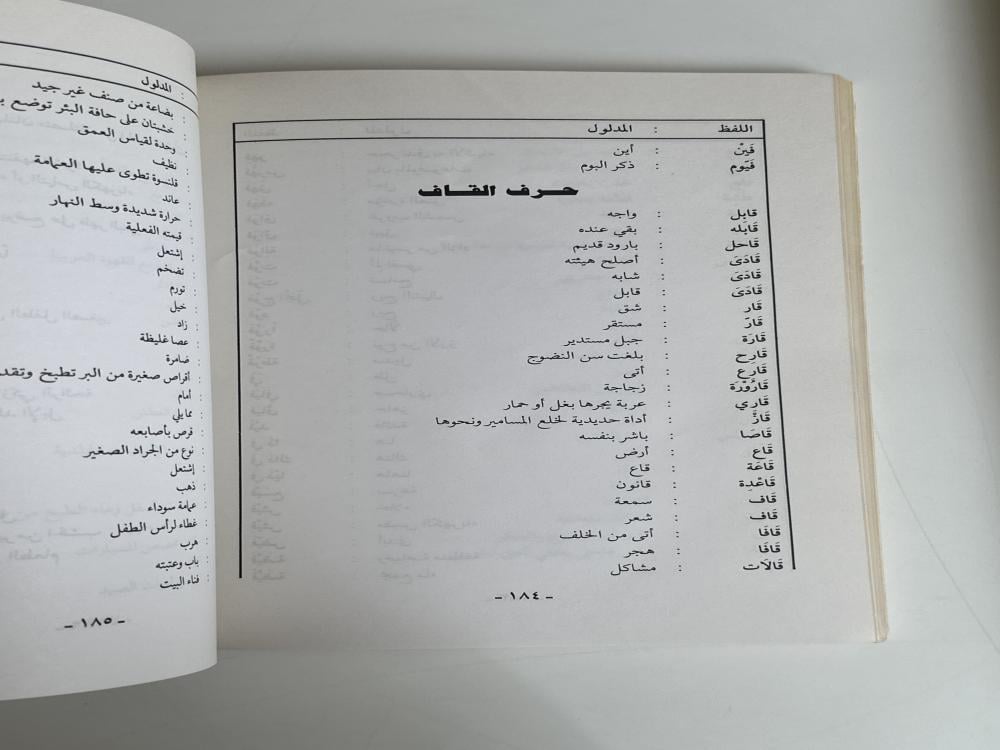 اللفظ : المدلول
فَيْنْ : أين
فَيّوم : ذكر البوم
حرف القاف
قابِل : واجه
قَابله : بقي عنده
قاحل : بارود قديم
قَادَىَ : أصلح هيئته
قَادَىَ : شابه
قَادَىَ : قابل
قَار : شق
قَارّ : مستقر
قَارَة : جبل مستدير
قَارِح : بلغت سن النضوج
قَارِع : أتى
قَارُورَة : زجاجة
قَاري : عربة يجرها بغل أو حمار
قَازَّ : أداة حديدية لخلع المسامير ونحوها
قَاصَا : باشر بنفسه
قَاع : أرض
قَاعَة : قاع
قَاعْدِة : قانون
قَاف : سمعة
قَاف : شعر
قَافَا : أتى من الخلف
قَافَا : هجر
قَالَات : مشاكل
- ١٨٤ -
: المدلول
: بضاعة من صنف غير جيد
: خشبتان على حافة البئر توضع
: وحدة لقياس العمق
: نظيف
: قلنسوة تطوى عليها العمامة
: عاند
: حرارة شديدة وسط النهار
: قيمته الفعلية
: إشتعل
: تضخم
: تورم
: خيل
: زاد
: عصا غليظة
: ضامرة
: أقراص صغيرة من البر تطبخ وتقد
: أمام
: مما يلي
: قرص بأصابعه
: نوع من الجراد الصغير
: إشتعل
: ذهب
: عمامة سوداء
: غطاء لرأس الطفل
: هرب
: باب وعتبته
: فناء البيت
- ١٨٥ -